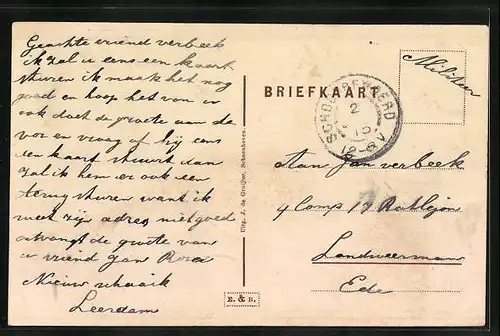 Geachte vriend verbeek
ik zal u eens een kaart
sturen ik maak het nog
goed en hoop het van u
ook doet de groete aan de
vor en vraag of hij eens
een kaart stuurt dan
zal ik hem er ook een
terug sturen want ik
weet zijn adres niet goed
ontvangt de groete van
u vriend Jan
Nieuw schaaik
Leerdam
Uitg. J. de Gruijter, Schoonhoven.
E. & B.
BRIEFKAART
Militair
SCHOONREWOERD
2
15
12-6 V
Aan Jan verbeek
4 Comp 17 Bataljon
Landweerman
Ede